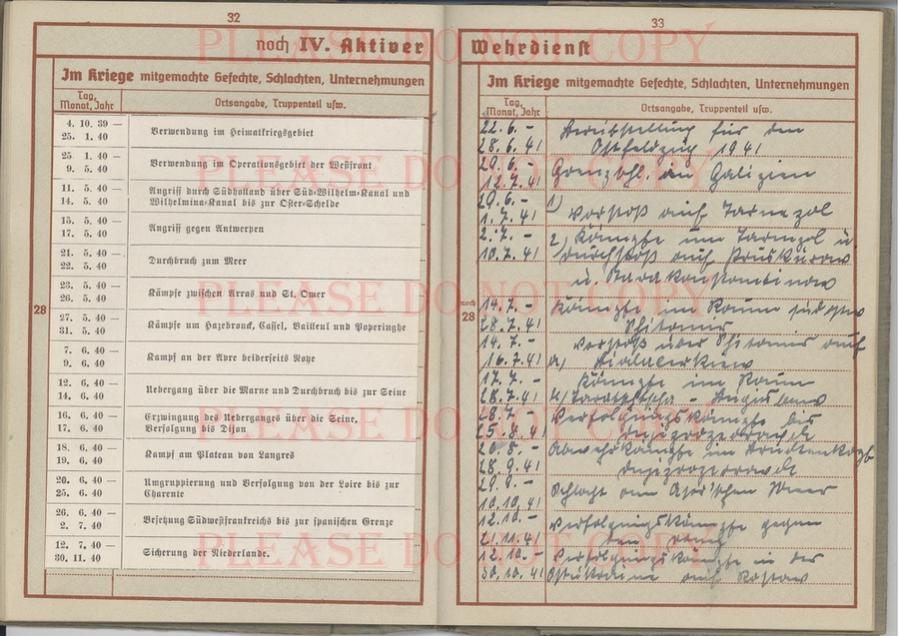 32
noch IV. Aktiver
Im Kriege mitgemachte Gefechte, Schlachten, Unternehmungen
Tag, Monat, Jahr
Ortsangabe, Truppenteil usw.
28
4. 10. 39 —
25. 1. 40
Verwendung im Heimatkriegsgebiet
25. 1. 40 —
9. 5. 40
Verwendung im Operationsgebiet der Westfront
11. 5. 40 —
14. 5. 40
Angriff durch Südholland über Süd-Wilhelm-Kanal und
Wilhelmina-Kanal bis zur Oster-Schelde
15. 5. 40 —
17. 5. 40
Angriff gegen Antwerpen
21. 5. 40 —
22. 5. 40
Durchbruch zum Meer
23. 5. 40 —
26. 5. 40
Kämpfe zwischen Arras und St. Omer
27. 5. 40 —
31. 5. 40
Kämpfe um Hazebrouck, Cassel, Bailleul und Poperinghe
7. 6. 40 —
9. 6. 40
Kampf an der Avre beiderseits Roye
12. 6. 40 —
14. 6. 40
Uebergang über die Marne und Durchbruch bis zur Seine
16. 6. 40 —
17. 6. 40
Erzwingung des Ueberganges über die Seine,
Verfolgung bis Dijon
18. 6. 40 —
19. 6. 40
Kampf am Plateau von Langres
20. 6. 40 —
25. 6. 40
Umgruppierung und Verfolgung von der Loire bis zur
Charente
26. 6. 40 —
2. 7. 40
Besetzung Südwestfrankreichs bis zur spanischen Grenze
12. 7. 40 —
30. 11. 40
Sicherung der Niederlande.
33
Wehrdienst
Im Kriege mitgemachte Gefechte, Schlachten, Unternehmungen
Tag, Monat, Jahr
Ortsangabe, Truppenteil usw.
noch 28
22.6. – Bereitstellung für den
28.6.41 Ostfeldzug 1941
29.6. – Grenzschl. in Galizien
12.7.41
29.6. – 1)
1.7.41 Vorstoß auf Tarnopol
2.7. – 2) Kämpfe um Tarnopol u.
10.7.41 Durchstoß auf Proskurow
u. Starokonstantinow
14.7. – Kämpfe im Raum südostw
28.7.41 Shitomir
14.7. – Vorstoß über Shitomir auf
16.7.41 a) Bialacerkiew
17.7. – Kämpfe im Raum
28.7.41
28.7. – Verfolgungskämpfe bis
25.8.41 Dnjepropetrowsk
26.8. – Abwehrkämpfe im Brückenkopf
28.9.41 Dnjepropetrowsk
29.9. – Schlacht am Asow'schen Meer
10.10.41
12.10. – Verfolgungskämpfe gegen
21.11.41 den Donez
12.10. – Verfolgungskämpfe in der
30.10.41 Ostukraine auf Rostow
PLEASE DO NOT COPY
PLEASE DO NOT COPY
PLEASE DO NOT COPY
PLEASE DO NOT COPY
PLEASE DO NOT COPY